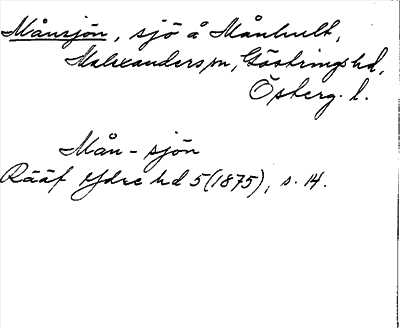 Månsjön, sjö å Månhult,
Malexanders sn, Göstrings hd,
Österg. l.
Mån-sjön
Rääf Ydre hd 5 (1875), s. 14.